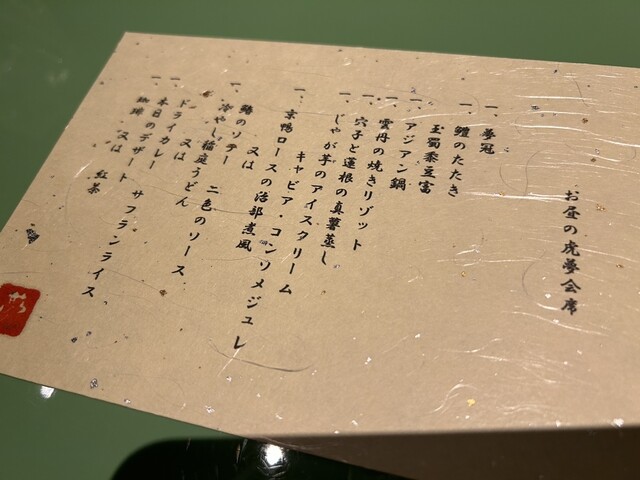 お昼の虎夢会席
一、夢冠
一、鱧のたたき
玉蜀黍豆富
一、アジアン鍋
一、雲丹の焼きリゾット
一、穴子と蓮根の真薯蒸し
一、じゃが芋のアイスクリーム
キャビア・コンソメジュレ
一、京鴨ロースの治部煮風
又は
鱸のソテー 二色のソース
一、冷やし稲庭うどん
又は
ドライカレー サフランライス
一、本日のデザート
一、珈琲 又は 紅茶